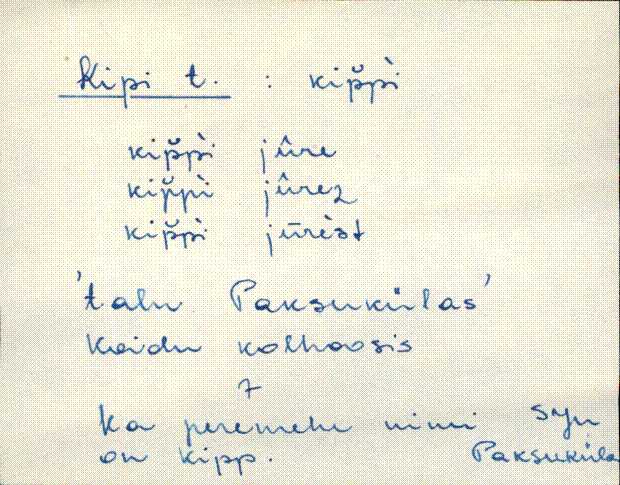 Kipi t. : kip̆pi̇̀
kip̆pi̇̀ jûre
kip̆pi̇̀ jûrez
kip̆pi̇̀ jūrèst
'talu Paksukülas'
Koidu kolhoosis
7
Ka peremehe nimi Syn
on Kipp. Paksuküla